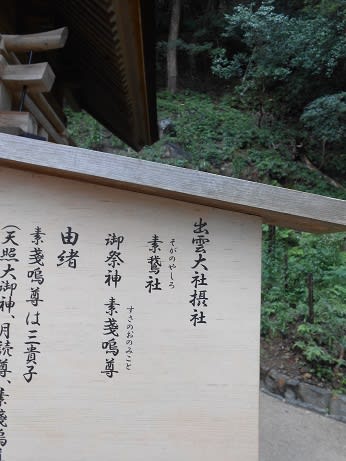 出雲大社摂社
そがのやしろ
素鵞社
すさのおのみこと
御祭神 素戔嗚尊
由緒
素戔嗚尊は三貴子
(天照大御神、月読尊、素戔嗚尊